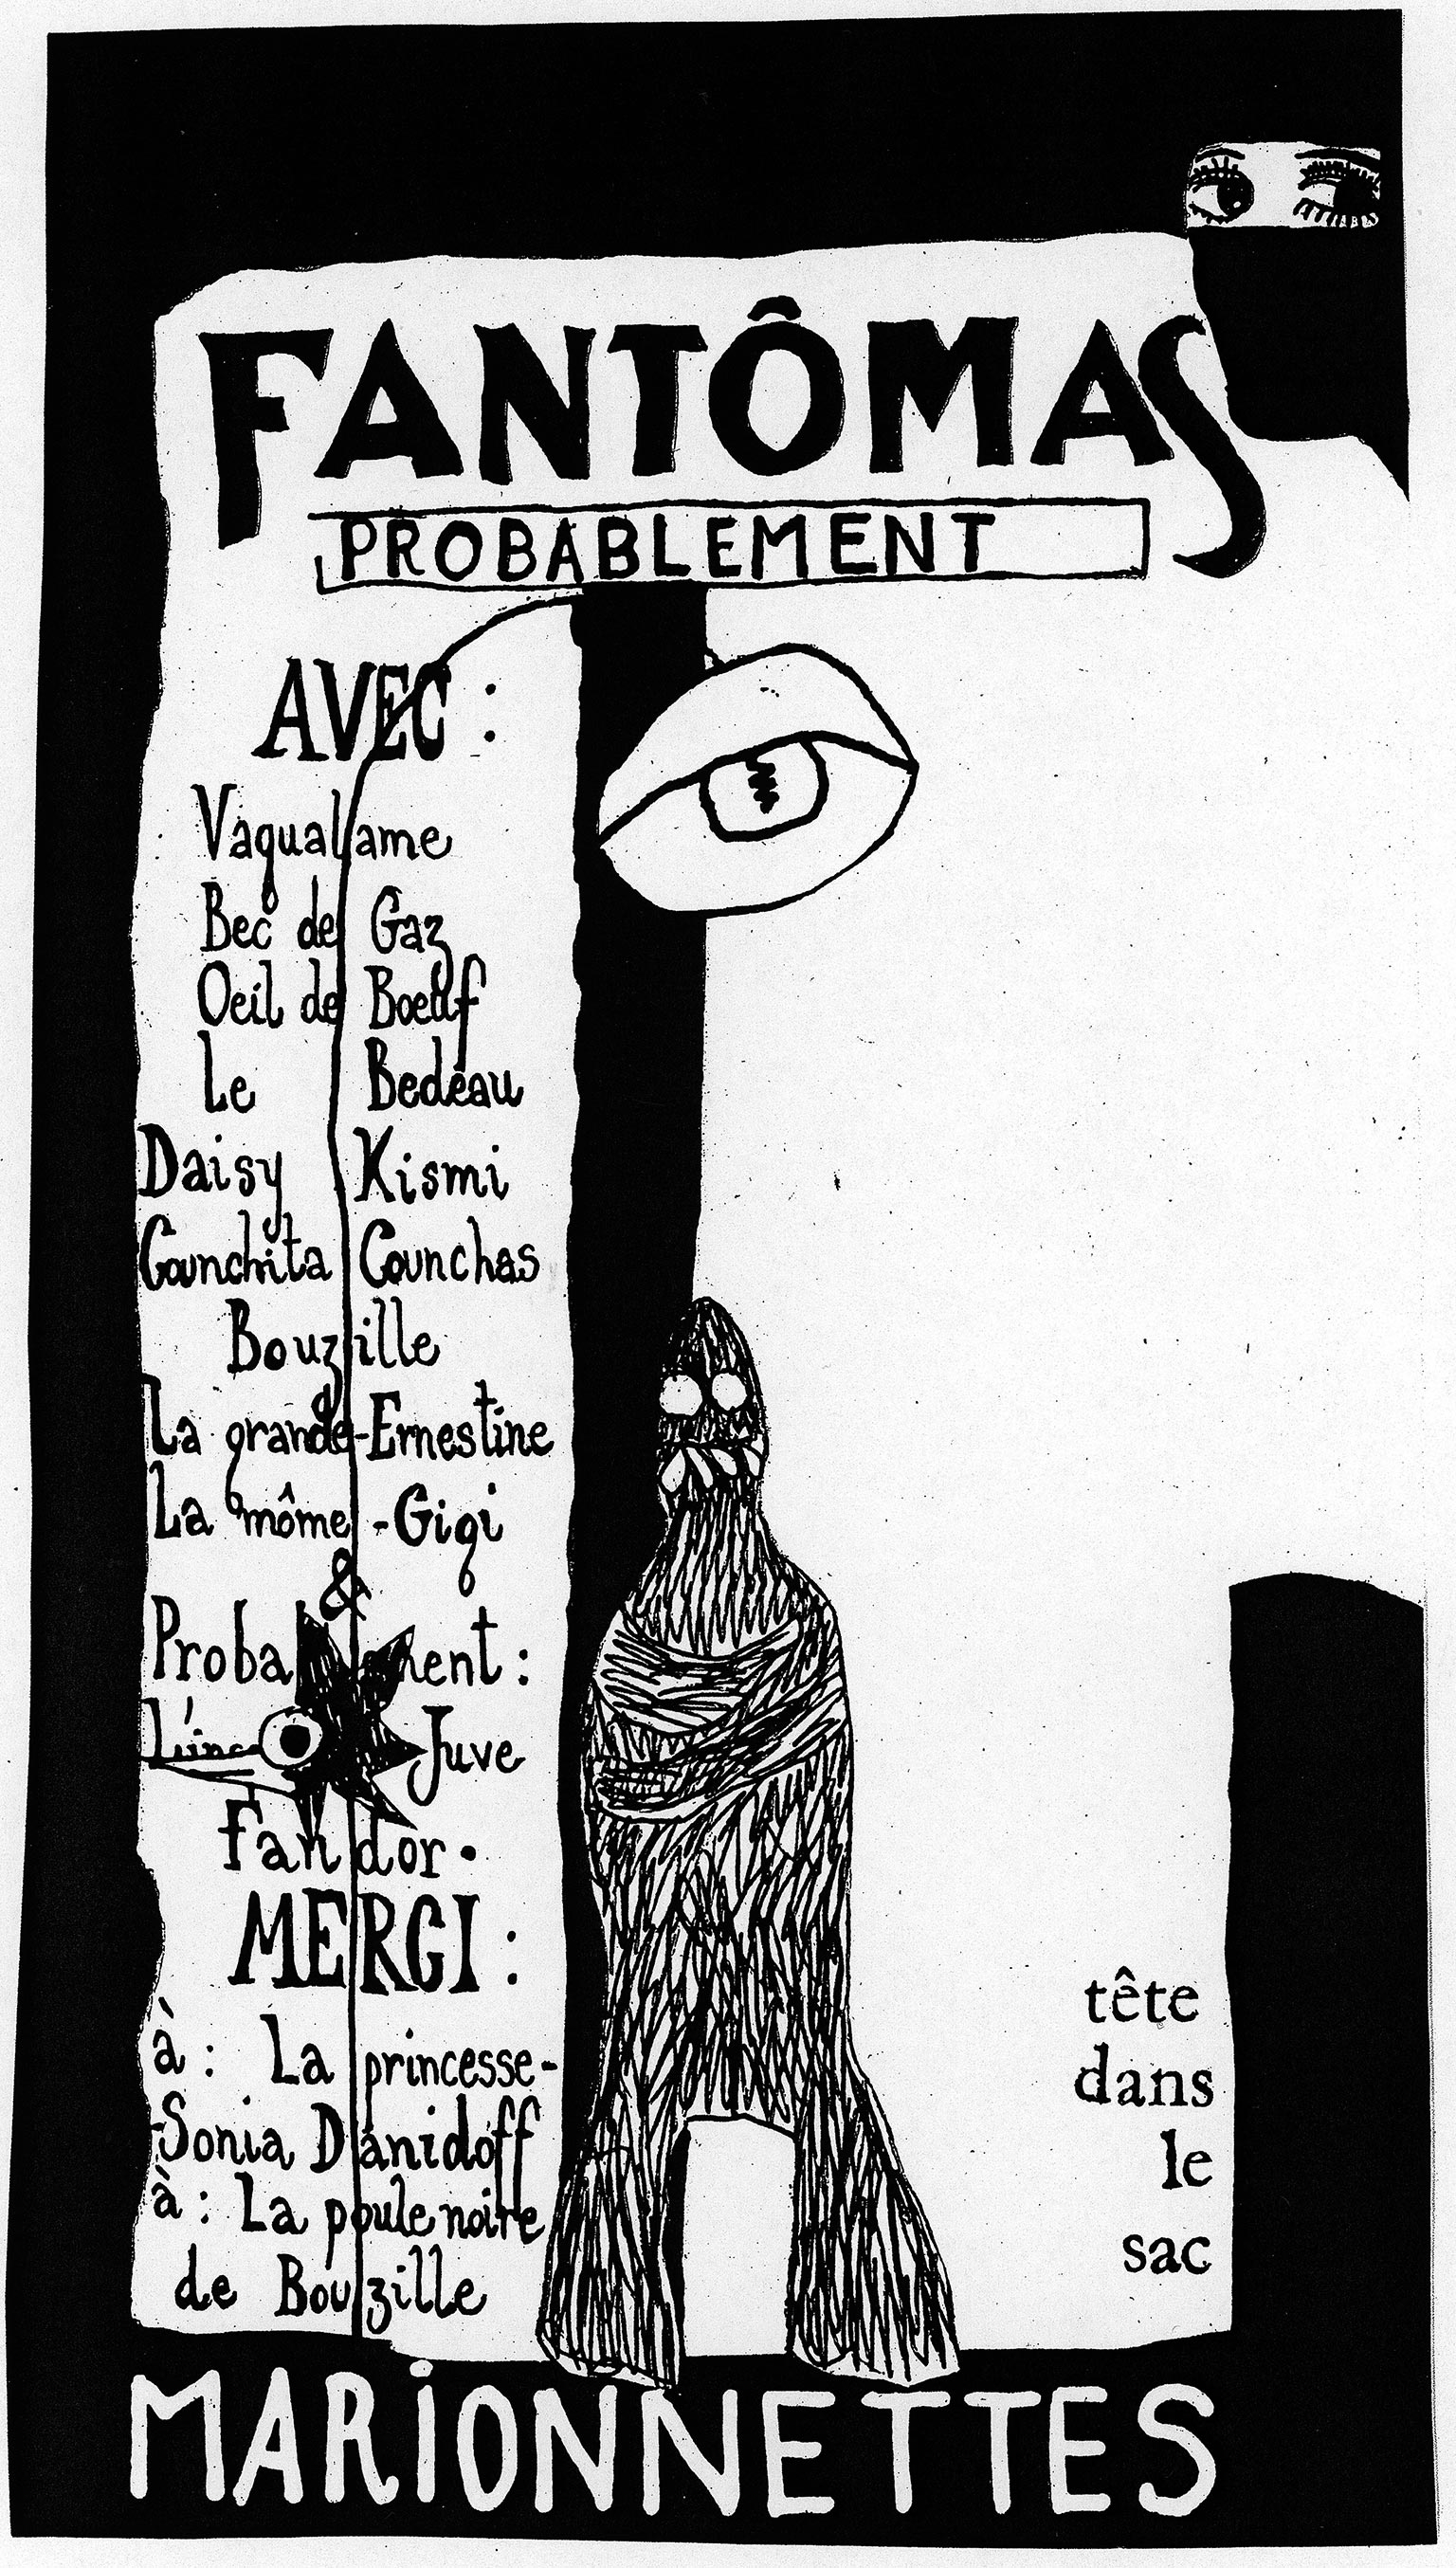 FANTÔMAS
PROBABLEMENT
AVEC :
Vaqualame
Bec de Gaz
Oeil de Boeuf
Le Bedeau
Daisy Kismi
Counchita Counchas
Bouzille
La grande-Ernestine
La môme-Gigi
&
Juve
Fandor.
MERCI :
à : La princesse-
-Sonia Danidoff
à : La poule noire
de Bouzille
tête
dans
le
sac
MARIONNETTES